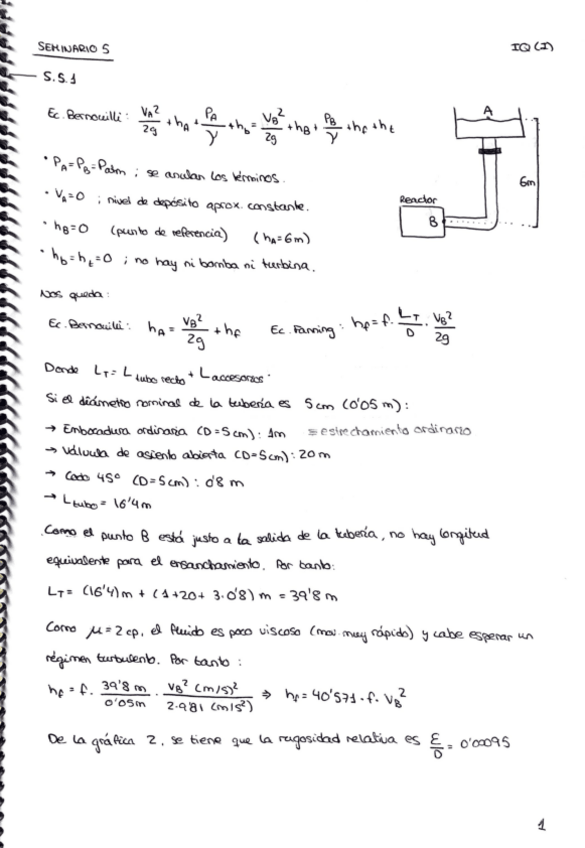 SEMINARIO 5
IQ (I)
5.5.1
Ec. Bernouilli : V_A²/2g + h_A + P_A/γ + h_b = V_B²/2g + h_B + P_B/γ + h_f + h_t
A
6m
Reactor
B
· P_A = P_B = Patm ; se anulan los términos.
· V_A = 0 ; nivel de depósito aprox. constante.
· h_B = 0 (punto de referencia) (h_A = 6m)
· h_b = h_t = 0 ; no hay ni bomba ni turbina.
Nos queda :
Ec. Bernouilli : h_A = V_B²/2g + h_f Ec. Fanning : h_f = f · L_T/D · V_B²/2g
Donde L_T = L tubo recto + L accesorios.
Si el diámetro nominal de la tubería es 5 cm (0'05 m) :
→ Embocadura ordinaria (D=5cm) : 1m ≡ estrechamiento ordinario
→ Válvula de asiento abierta (D=5cm) : 20 m
→ Codo 45º (D=5cm) : 0'8 m
→ L tubo = 16'4 m
Como el punto B está justo a la salida de la tubería, no hay longitud
equivalente para el ensanchamiento. Por tanto:
L_T = (16'4) m + (1 + 20 + 3·0'8) m = 39'8 m
Como μ = 2 cp, el fluido es poco viscoso (mov. muy rápido) y cabe esperar un
régimen turbulento. Por tanto :
h_f = f · 39'8 m/0'05m · V_B² (m/s)²/2·9'81 (m/s²) ⇒ h_f = 40'571 · f · V_B²
De la gráfica 2, se tiene que la rugosidad relativa es ε/D = 0'00095
1